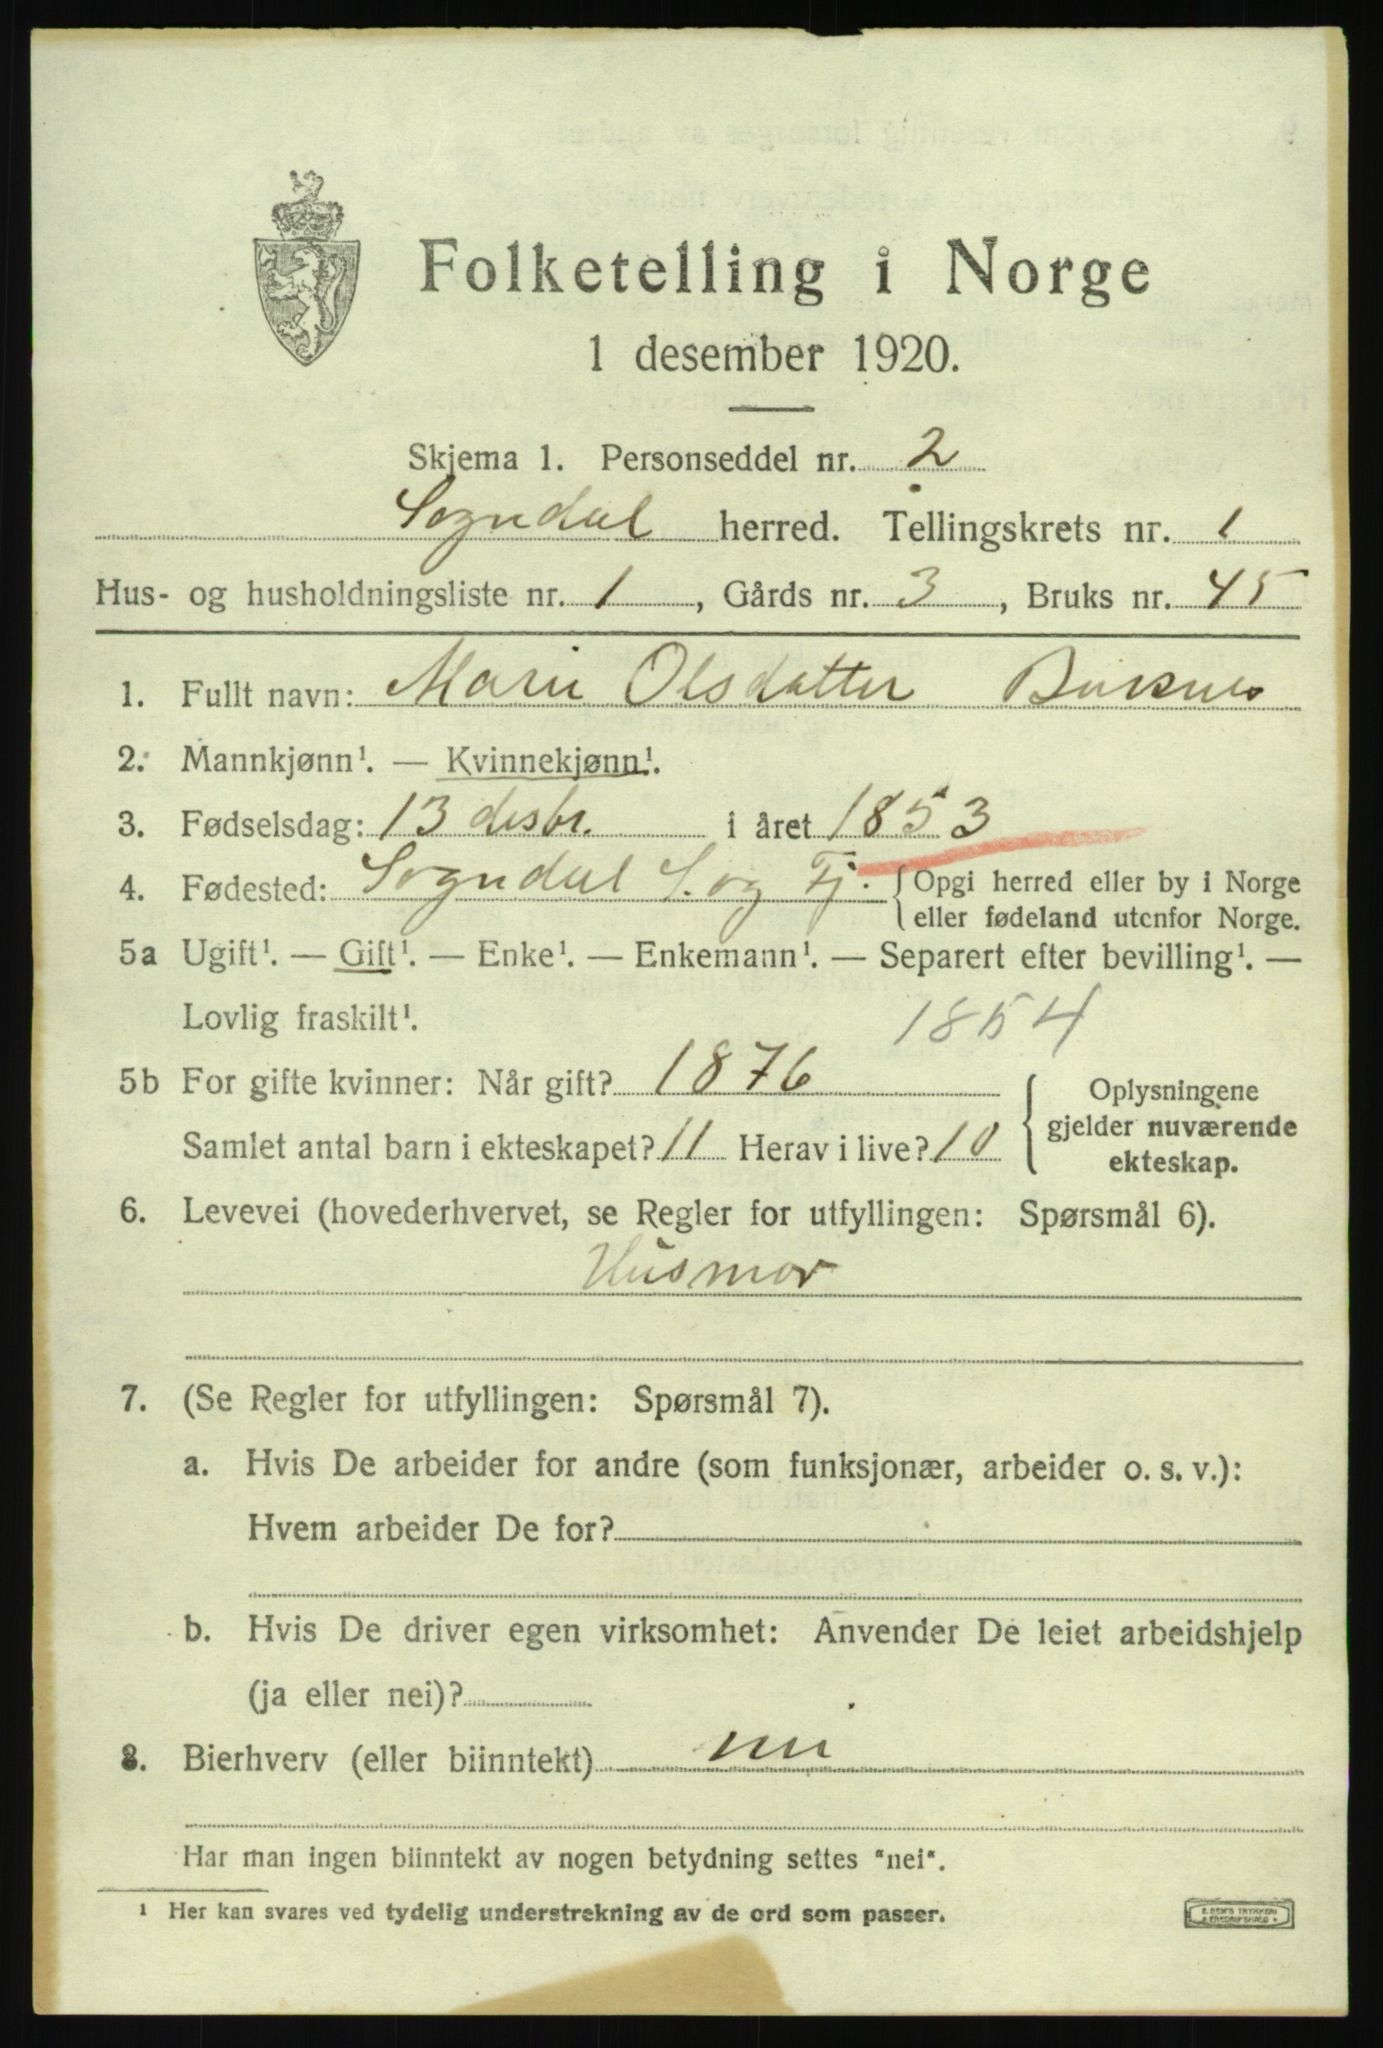 Folketelling i Norge
1 desember 1920.
Skjema 1. Personseddel nr. 2
Sogndal herred. Tellingskrets nr. 1
Hus- og husholdningsliste nr. 1, Gårds nr. 3, Bruks nr. 45
1. Fullt navn: Marie Olsdatter
2. Mannkjønn¹. — Kvinnekjønn¹.
3. Fødselsdag: 13 desbr. i året 1853
4. Fødested: Sogndal S. og Fj. { Opgi herred eller by i Norge
eller fødeland utenfor Norge.
5a Ugift¹. — Gift¹. — Enke¹. — Enkemann¹. — Separert efter bevilling¹. —
Lovlig fraskilt¹. 1854
5b For gifte kvinner: Når gift? 1876 Oplysningene
gjelder nuværende
Samlet antal barn i ekteskapet? 11 Herav i live? 10
ekteskap.
6. Levevei (hovederhvervet, se Regler for utfyllingen: Spørsmål 6).
Husmor
7. (Se Regler for utfyllingen: Spørsmål 7).
a. Hvis De arbeider for andre (som funksjonær, arbeider o. s. v.):
Hvem arbeider De for?
b. Hvis De driver egen virksomhet: Anvender De leiet arbeidshjelp
(ja eller nei)?
8. Bierhverv (eller biinntekt) nei
Har man ingen biinntekt av nogen betydning settes "nei".
¹ Her kan svares ved tydelig understrekning av de ord som passer.